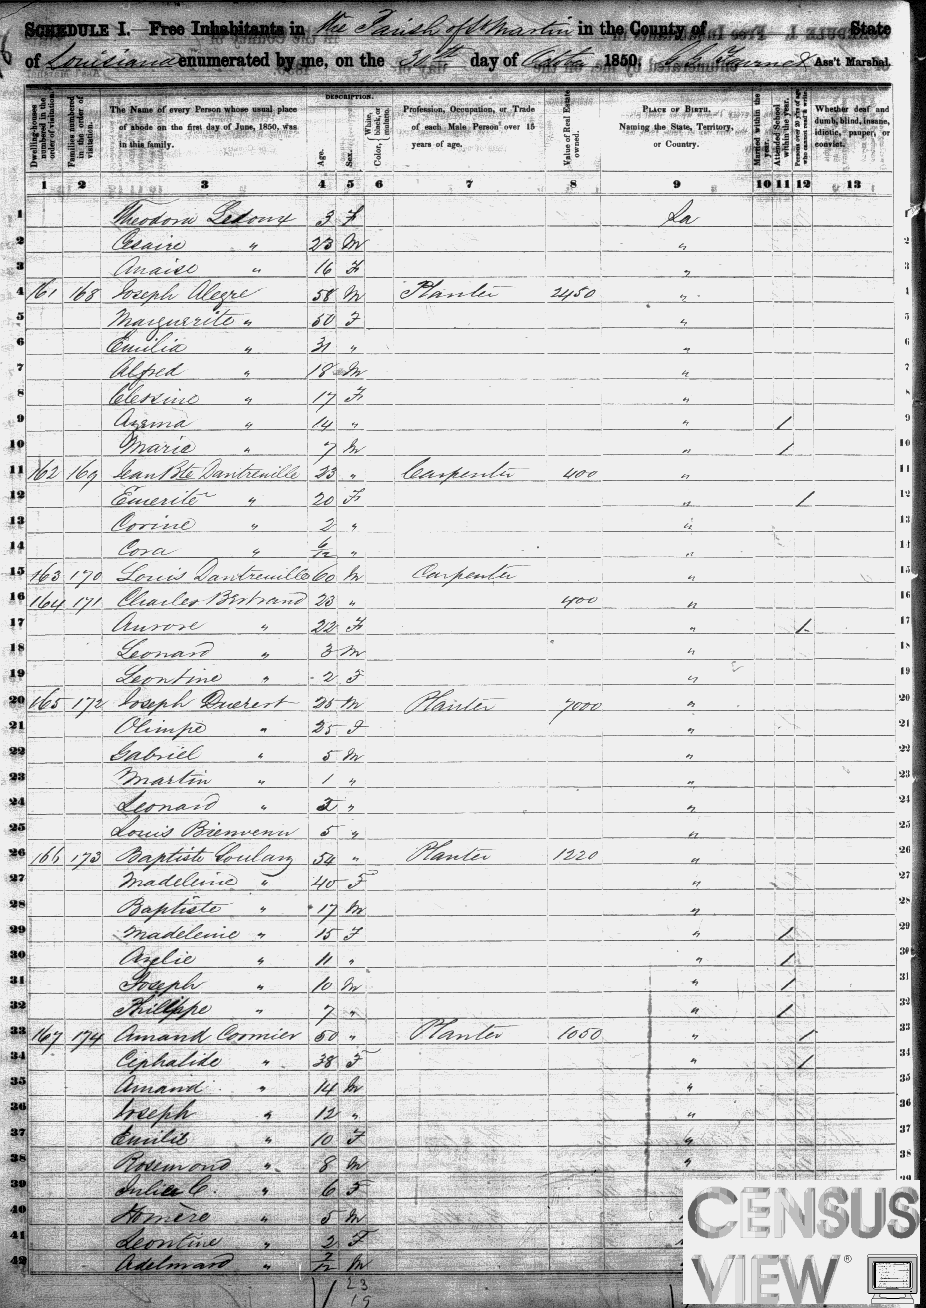 SCHEDULE I.—Free Inhabitants in the Parish of St Martin in the County of State
of Louisiana enumerated by me, on the 30th day of Octbr 1850. Ass't Marshal.
Dwelling-houses numbered in the order of visitation.
Families numbered in the order of visitation.
The Name of every Person whose usual place of abode on the first day of June, 1850, was in this family.
DESCRIPTION.
Age.
Sex.
Color, { White, black, or mulatto.
Profession, Occupation, or Trade of each Male Person over 15 years of age.
Value of Real Estate owned.
PLACE OF BIRTH. Naming the State, Territory, or Country.
Married within the year.
Attended School within the year.
Persons over 20 y'rs of age who cannot read & write.
Whether deaf and dumb, blind, insane, idiotic, pauper, or convict.
1 2 3 4 5 6 7 8 9 10 11 12 13
1 Theodora Ledoux 3 F La 1
2 Cesaire " 23 M " 2
3 Anaise " 16 F " 3
4 161 168 Joseph Alegre 58 M Planter 2450 " 4
5 Marguerite " 50 F " 5
6 Emilia " 31 " " 6
7 Alfred " 18 M " 7
8 Clersine " 17 F " 8
9 Azema " 14 " " 1 9
10 Marie " 7 M " 1 10
11 162 169 Jean Bte Dantreuille 23 " Carpenter 400 " 11
12 Emerite " 20 F " 1 12
13 Corine " 2 " " 13
14 Cora " 6/12 " " 14
15 163 170 Louis Dantreuille 60 M Carpenter " 15
16 164 171 Charles Bertrand 23 " 400 " 16
17 Aurore " 22 F " 1 17
18 Leonard " 3 M " 18
19 Leontine " 2 F " 19
20 165 172 Joseph Ducrest 25 M Planter 7000 " 20
21 Olimpe " 25 F " 21
22 Gabriel " 5 M " 22
23 Martin " 1 " " 23
24 Leonard " " " 24
25 Louis Bienvenu 5 " " 25
26 166 173 Baptiste 54 " Planter 1220 " 26
27 Madeleine " 40 F " 27
28 Baptiste " 17 M " 28
29 Madeleine " 15 F " 1 29
30 Azelie " 11 " " 1 30
31 Joseph " 10 M " 1 31
32 Phillippe " 7 " " 1 32
33 167 174 Amand Cormier 50 " Planter 1050 " 1 33
34 Cephalide " 38 F " 1 34
35 Amand " 14 M " 35
36 Joseph " 12 " " 36
37 Emilie " 10 F " 37
38 Rosemond " 8 M " 38
39 Julie C. " 6 F 39
40 Homère " 5 M
41 Leontine " 2 F
42 Adelmard " M
23
19
CENSUS
VIEW®